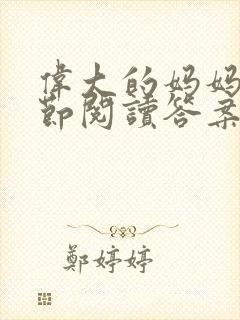 偉大的妈妈
節閱讀答案
鄭婷婷